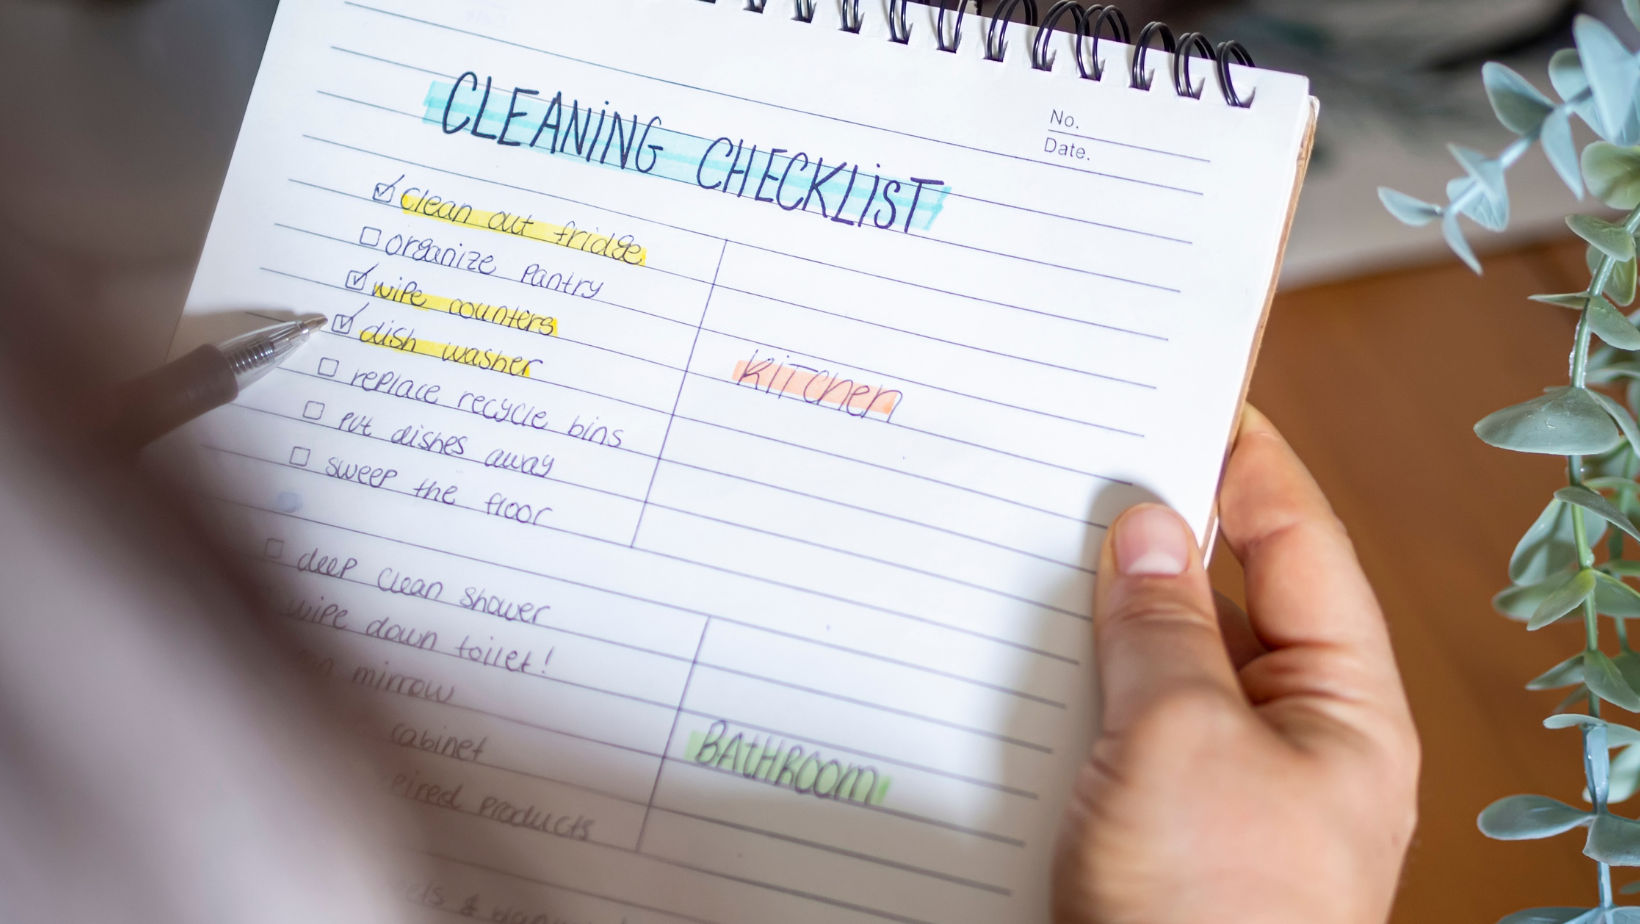 No.
Date.
CLEANiNG CHECKLiST
☑ Clean out fridge
☐ organize pantry
☑ wipe counters
☑ dish washer
☐ replace recycle bins
☐ put dishes away
☐ sweep the floor
Kitchen
☐ deep clean shower
wipe down toilet!
mirrow
cabinet
products
BAtHRoom
&